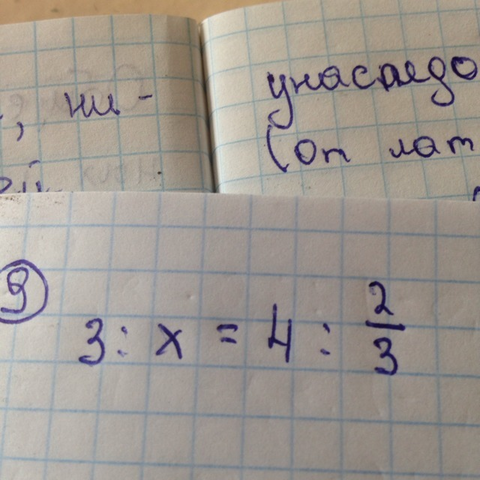 , ни-
ей
унаследо
(от лат
③
3 : x = 4 : 2/3